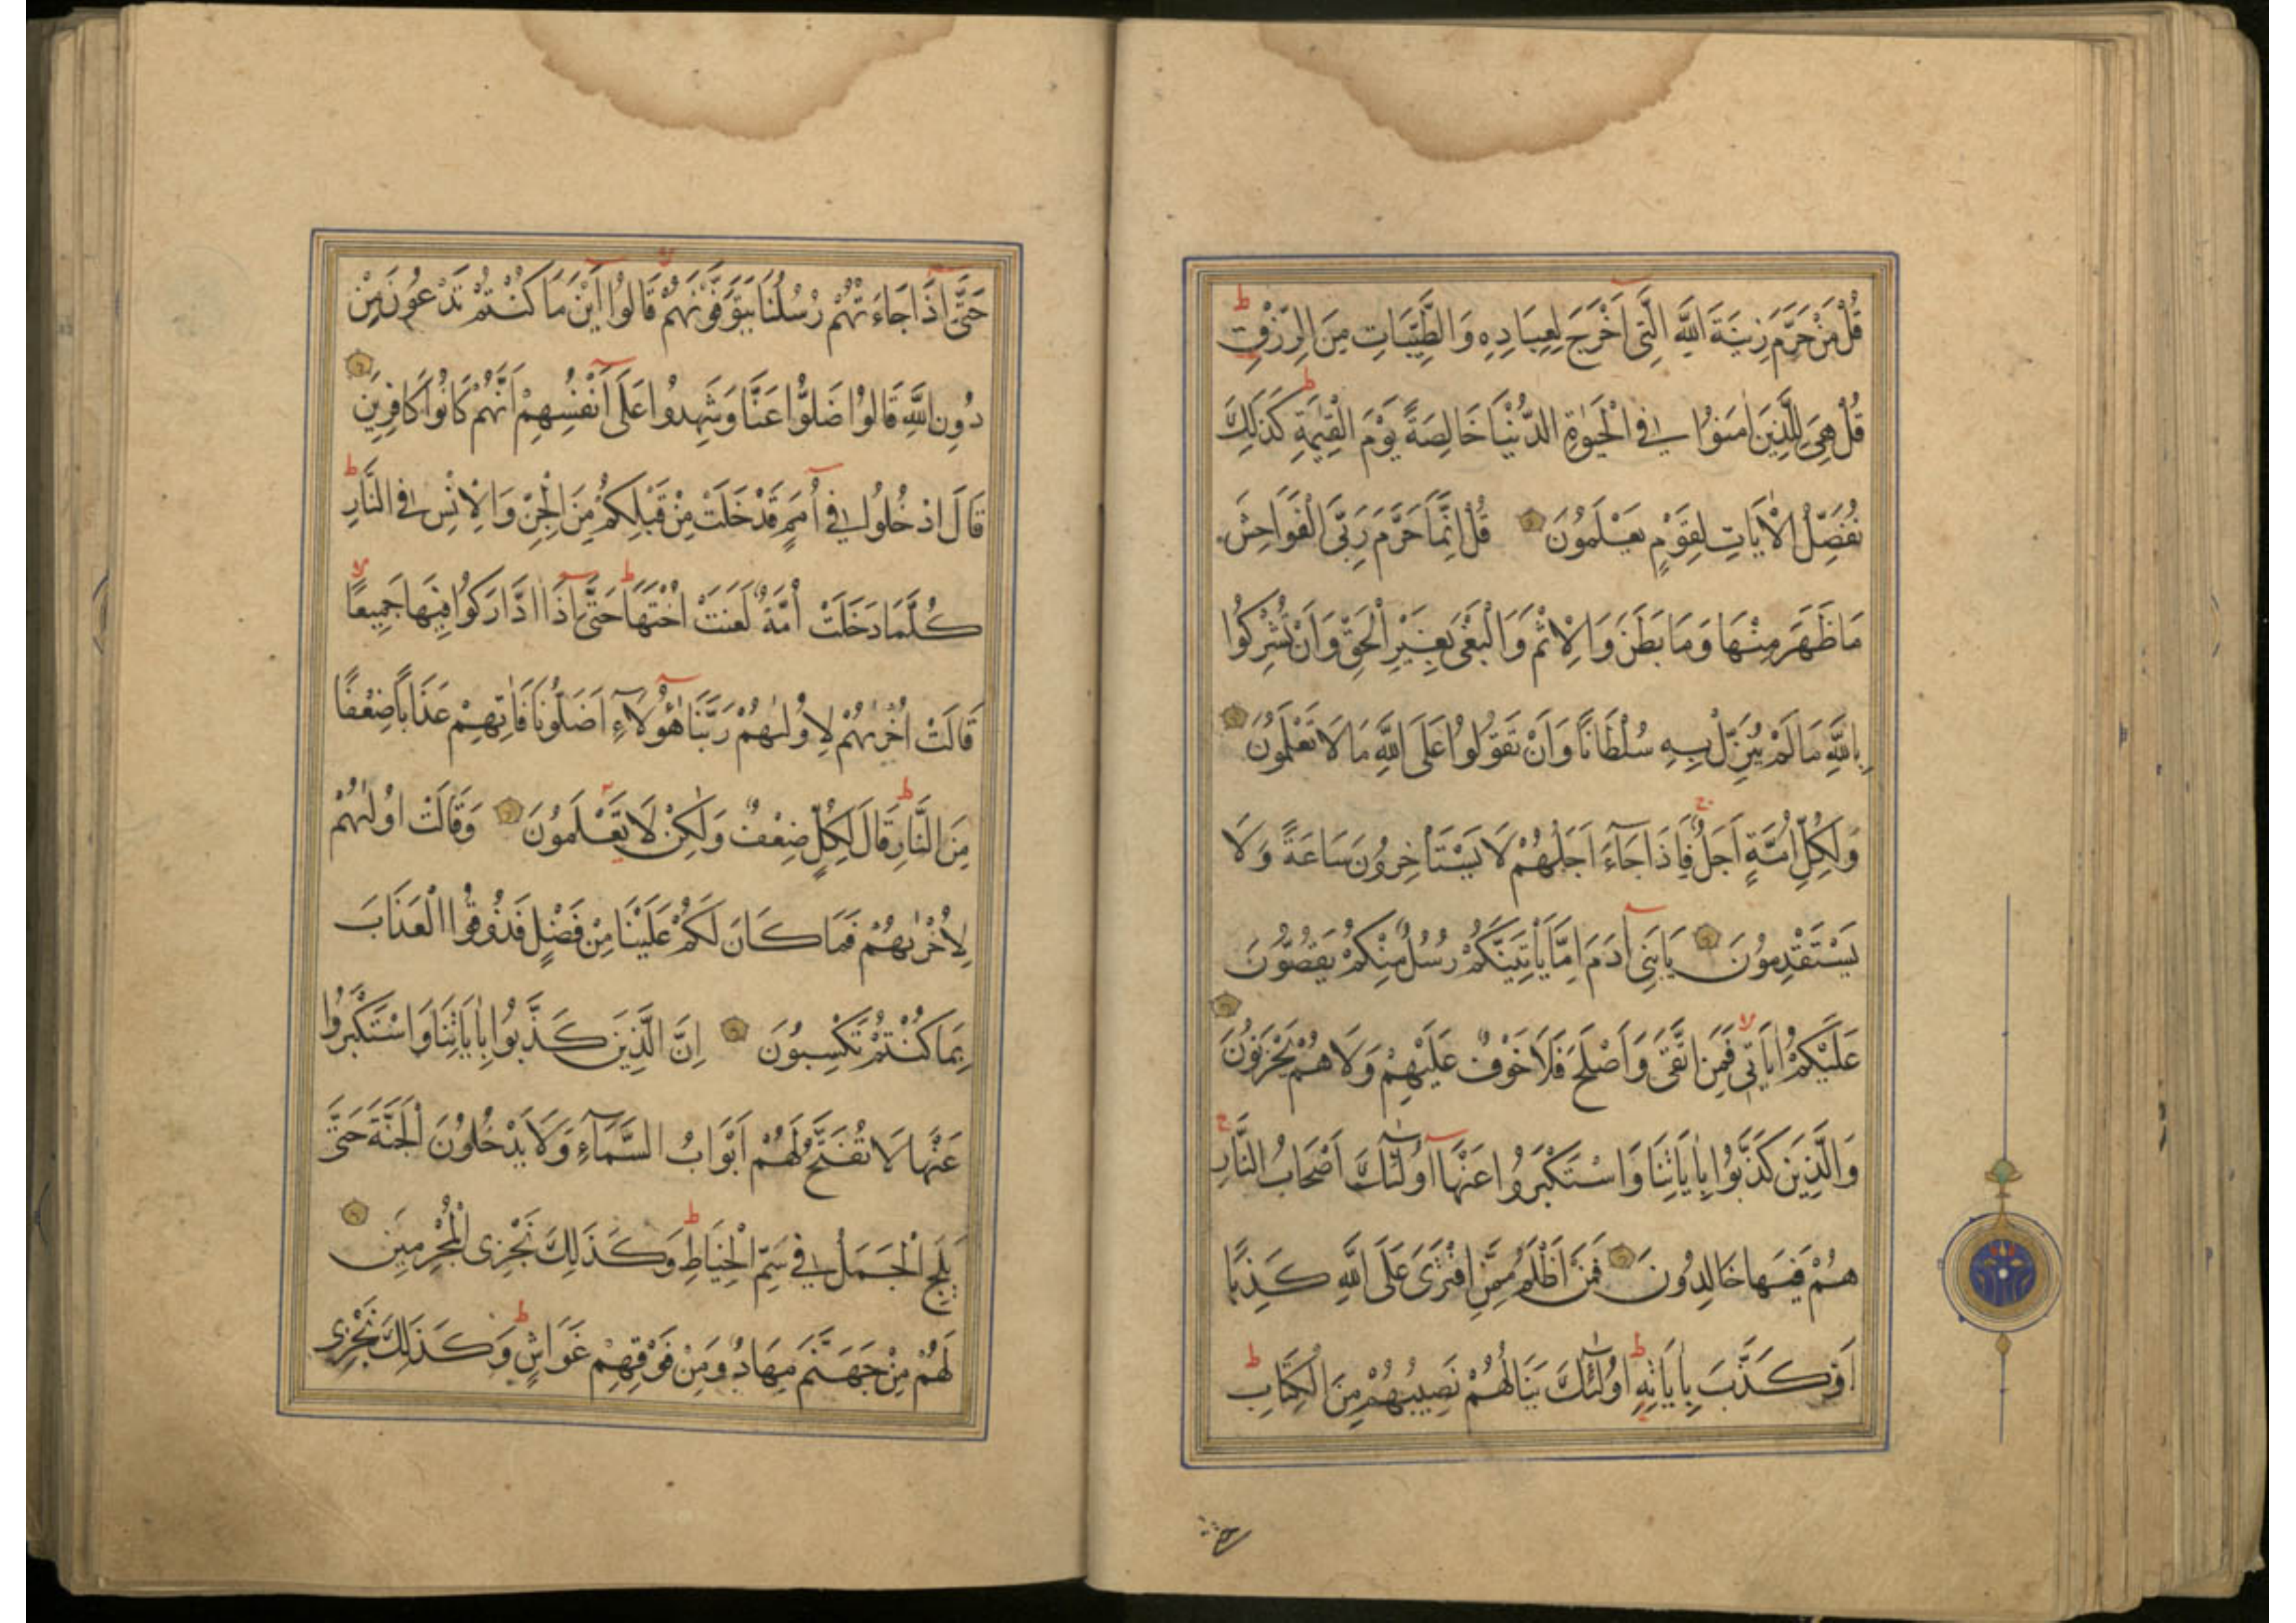 قُلْ مَنْ حَرَّمَ زِينَةَ اللَّهِ الَّتِى اَخْرَجَ لِعِبَادِهِ وَالطَّيِّبَاتِ مِنَ الرِّزْقِ ط
قُلْ هِىَ لِلَّذِينَ اٰمَنُوا فِى الْحَيٰوةِ الدُّنْيَا خَالِصَةً يَوْمَ الْقِيٰمَةِ ط كَذٰلِكَ
نُفَصِّلُ الْاٰيَاتِ لِقَوْمٍ يَعْلَمُونَ قُلْ اِنَّمَا حَرَّمَ رَبِّىَ الْفَوَاحِشَ
مَا ظَهَرَ مِنْهَا وَمَا بَطَنَ وَالْاِثْمَ وَالْبَغْىَ بِغَيْرِ الْحَقِّ وَاَنْ تُشْرِكُوا
بِاللَّهِ مَا لَمْ يُنَزِّلْ بِهِ سُلْطَانًا وَاَنْ تَقُولُوا عَلَى اللَّهِ مَا لَا تَعْلَمُونَ
وَلِكُلِّ اُمَّةٍ اَجَلٌ ج فَاِذَا جَآءَ اَجَلُهُمْ لَا يَسْتَاْخِرُونَ سَاعَةً وَلَا
يَسْتَقْدِمُونَ يَابَنِى اٰدَمَ اِمَّا يَاْتِيَنَّكُمْ رُسُلٌ مِنْكُمْ يَقُصُّونَ
عَلَيْكُمْ اٰيَاتِى لا فَمَنِ اتَّقَى وَاَصْلَحَ فَلَا خَوْفٌ عَلَيْهِمْ وَلَا هُمْ يَحْزَنُونَ
وَالَّذِينَ كَذَّبُوا بِاٰيَاتِنَا وَاسْتَكْبَرُوا عَنْهَا اُولٰئِكَ اَصْحَابُ النَّارِ ج
هُمْ فِيهَا خَالِدُونَ فَمَنْ اَظْلَمُ مِمَّنِ افْتَرَى عَلَى اللَّهِ كَذِبًا
اَوْ كَذَّبَ بِاٰيَاتِهِ ط اُولٰئِكَ يَنَالُهُمْ نَصِيبُهُمْ مِنَ الْكِتَابِ ط
حتى
حَتَّى اِذَا جَاءَتْهُمْ رُسُلُنَا يَتَوَفَّوْنَهُمْ لا قَالُوا اَيْنَ مَا كُنْتُمْ تَدْعُونَ مِنْ
دُونِ اللَّهِ قَالُوا ضَلُّوا عَنَّا وَشَهِدُوا عَلَى اَنْفُسِهِمْ اَنَّهُمْ كَانُوا كَافِرِينَ
قَالَ ادْخُلُوا فِى اُمَمٍ قَدْ خَلَتْ مِنْ قَبْلِكُمْ مِنَ الْجِنِّ وَالْاِنْسِ فِى النَّارِ ط
كُلَّمَا دَخَلَتْ اُمَّةٌ لَعَنَتْ اُخْتَهَا ط حَتَّى اِذَا ادَّارَكُوا فِيهَا جَمِيعًا لا
قَالَتْ اُخْرٰيهُمْ لِاُولٰيهُمْ رَبَّنَا هٰؤُلَاءِ اَضَلُّونَا فَاٰتِهِمْ عَذَابًا ضِعْفًا
مِنَ النَّارِ ط قَالَ لِكُلٍّ ضِعْفٌ وَلٰكِنْ لَا تَعْلَمُونَ وَقَالَتْ اُولٰيهُمْ
لِاُخْرٰيهُمْ فَمَا كَانَ لَكُمْ عَلَيْنَا مِنْ فَضْلٍ فَذُوقُوا الْعَذَابَ
بِمَا كُنْتُمْ تَكْسِبُونَ اِنَّ الَّذِينَ كَذَّبُوا بِاٰيَاتِنَا وَاسْتَكْبَرُوا
عَنْهَا لَا تُفَتَّحُ لَهُمْ اَبْوَابُ السَّمَآءِ وَلَا يَدْخُلُونَ الْجَنَّةَ حَتَّى
يَلِجَ الْجَمَلُ فِى سَمِّ الْخِيَاطِ ط وَكَذٰلِكَ نَجْزِى الْمُجْرِمِينَ
لَهُمْ مِنْ جَهَنَّمَ مِهَادٌ وَمِنْ فَوْقِهِمْ غَوَاشٍ ط وَكَذٰلِكَ نَجْزِى